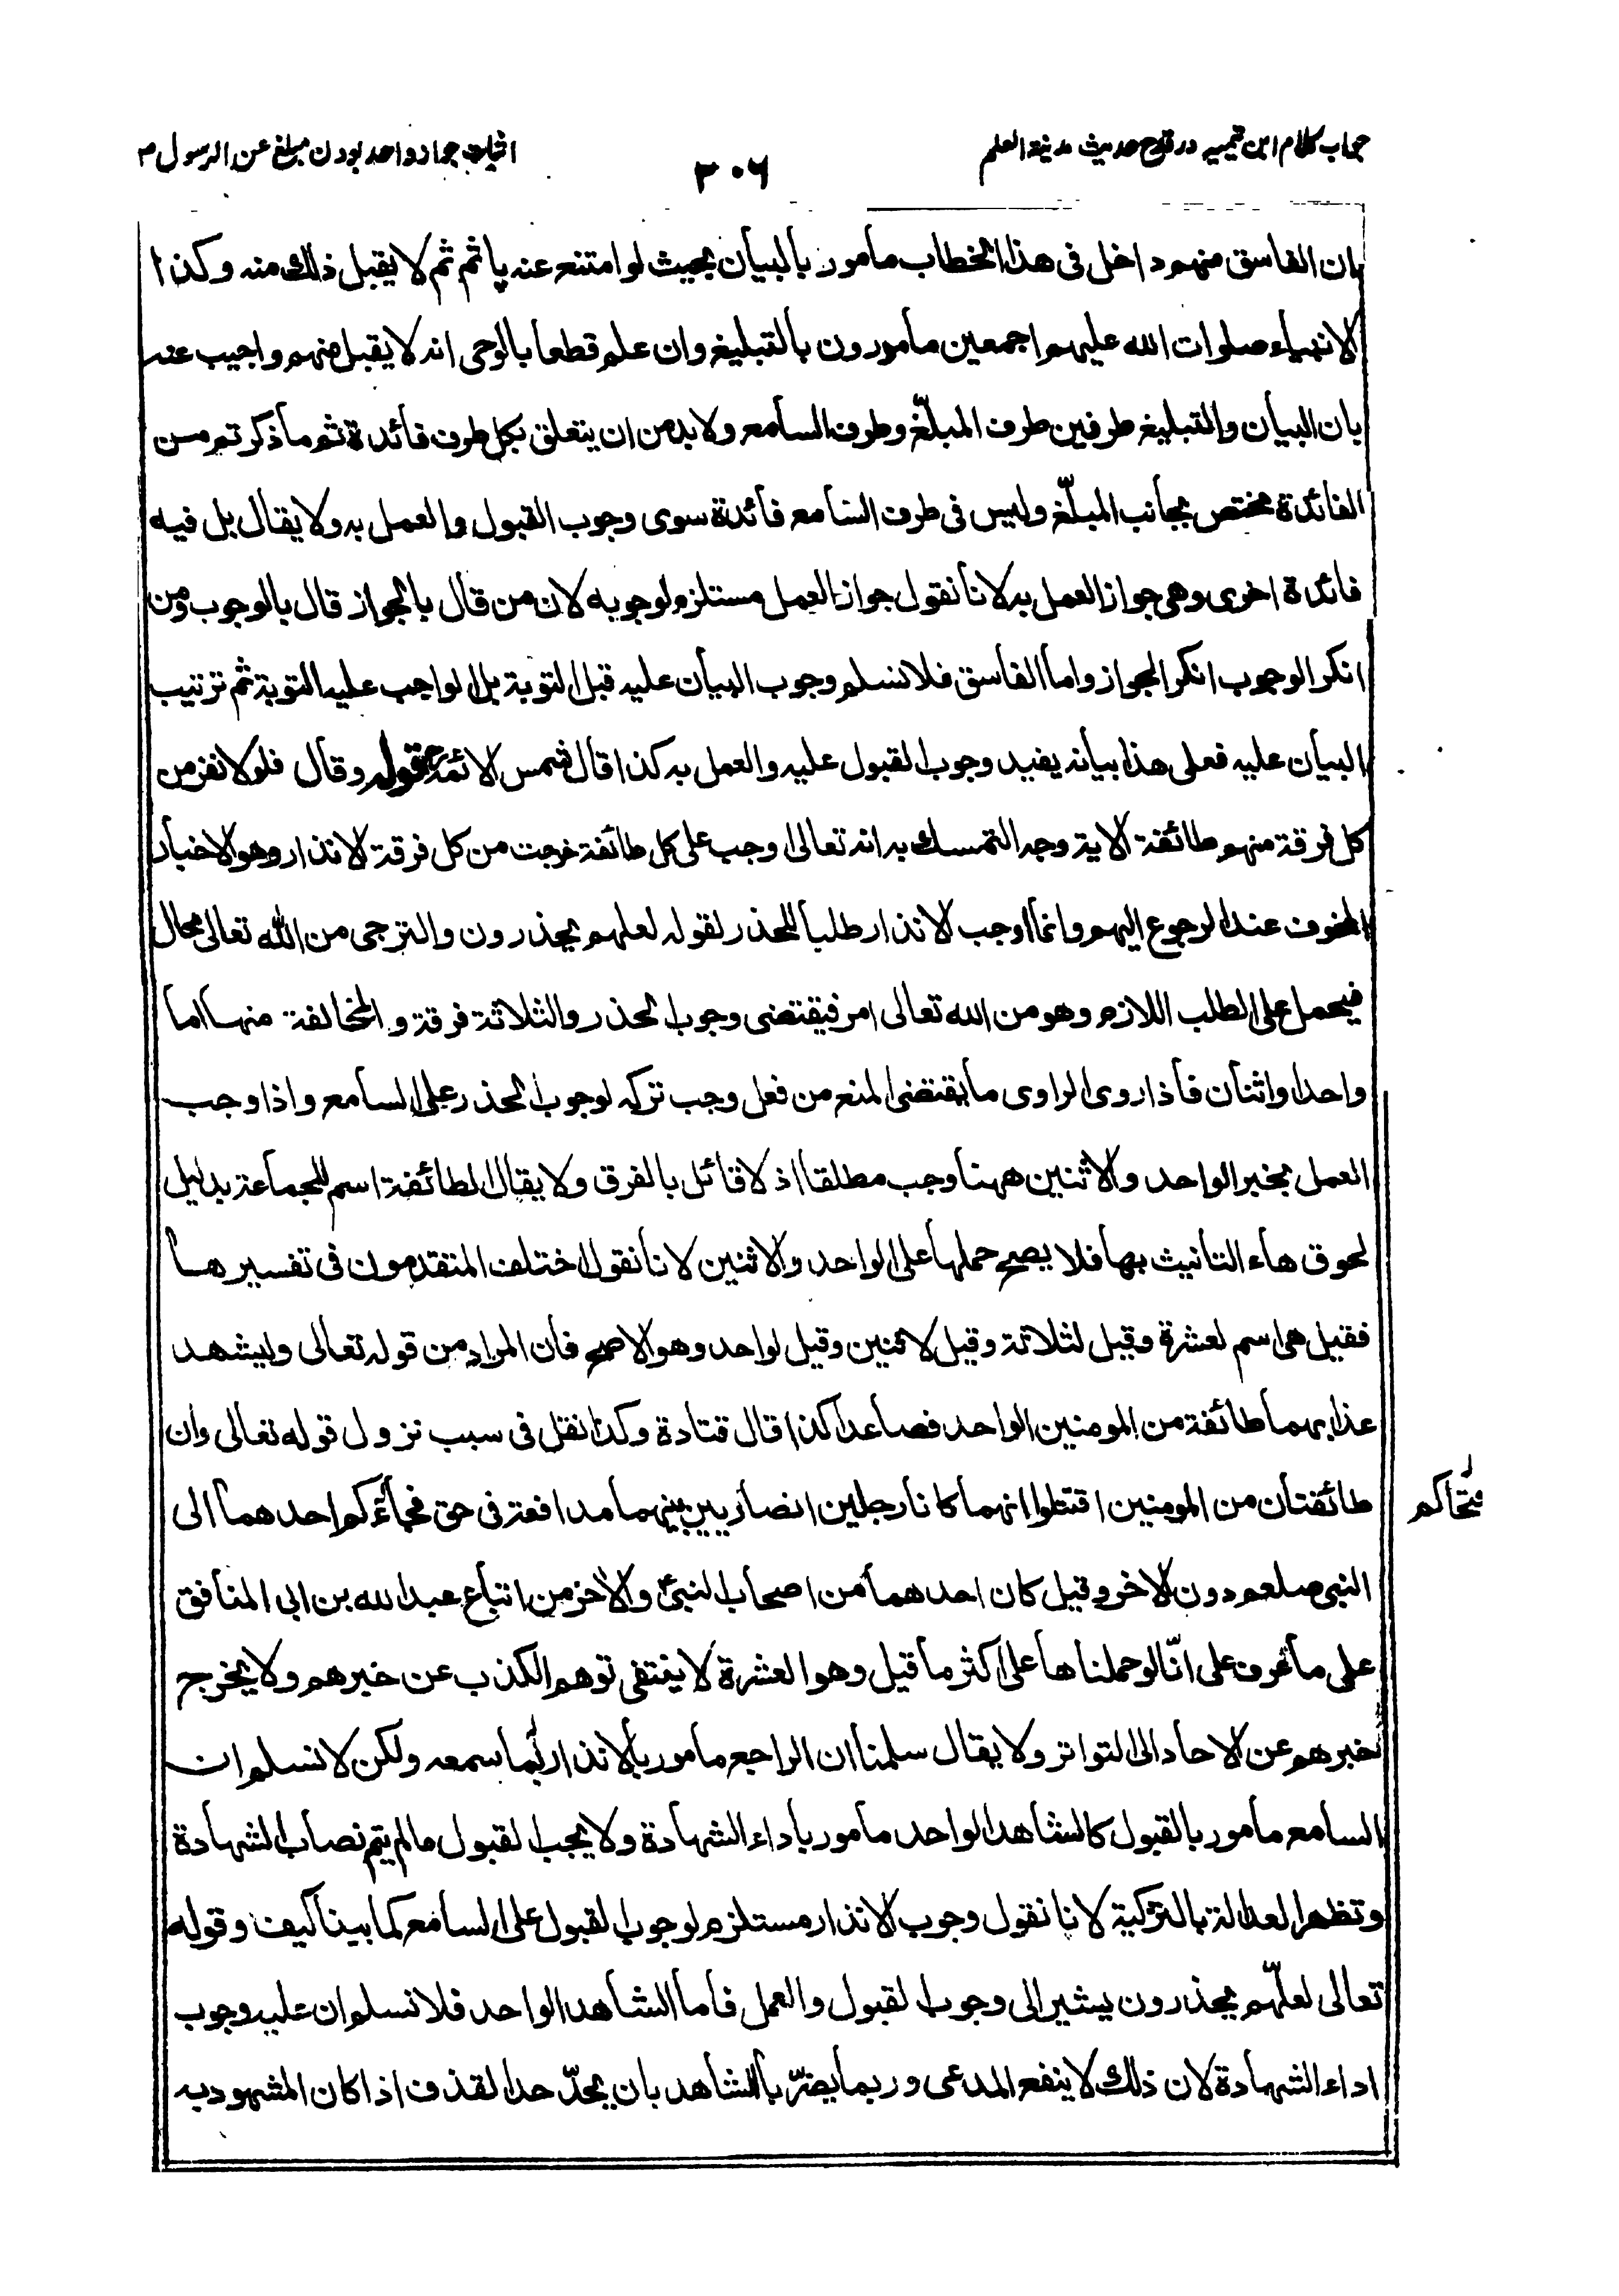 جواب کلام ابن تیمیه در قدح حدیث مدینة العلم
۳۰۶
اثبات جواز واحد بودن مبلغ عن الرسول ص
بان الفاسق منهم داخل فى هذا الخطاب مأمور بالبيان بحيث لو امتنع عنه ياثم ثم لا يقبل ذلك منه وكذا
الانبياء صلوات الله عليهم اجمعين مأمورون بالتبليغ وان علم قطعا بالوحى انه لا يقبل منهم واجيب عنه
بان البيان والتبليغ طرفين طرف المبلّغ وطرف السامع ولا بد من ان يتعلق بكل طرف فائدة ثم ما ذكرتم من
الفائدة مختص بجانب المبلّغ وليس فى طرف السامع فائدة سوى وجوب القبول والعمل به ولا يقال بل فيه
فائدة اخرى وهى جواز العمل به لانا نقول جواز العمل مستلزم لوجوبه لان من قال بالجواز قال بالوجوب ومن
انكر الوجوب انكر الجواز واما الفاسق فلا نسلم وجوب البيان عليه قبل التوبة بل الواجب عليه التوبة ثم ترتيب
البيان عليه فعلى هذا بيانه يفيد وجوب القبول عليه والعمل به كذا قال شمس الائمة قوله وقال فلولا نفر من
كل فرقة منهم طائفة الاية وجه التمسك به انه تعالى اوجب على كل طائفة خرجت من كل فرقة الانذار وهو الاخبار
المخوف عند الرجوع اليهم وانما اوجب الانذار طلبا للحذر لقوله لعلهم يحذرون والترجى من الله تعالى محال
فيحمل على الطلب اللازم وهو من الله تعالى امر فيقتضى وجوب الحذر والثلاثة فرقة و المخالفة منها اما
واحد او اثنان فاذا روى الراوى ما يقتضى المنع من فعل وجب تركه لوجوب الحذر على السامع واذا وجب
العمل بخبر الواحد والاثنين ههنا وجب مطلقا اذ لا قائل بالفرق ولا يقال الطائفة اسم للجماعة بدليل
لحوق هاء التانيث بها فلا يصح حملها على الواحد والاثنين لانا نقول اختلف المتقدمون فى تفسيرها
فقيل هى اسم لعشرة وقيل لثلاثة وقيل لاثنين وقيل لواحد وهو الاصح فان المراد من قوله تعالى وليشهد
عذابهما طائفة من المومنين الواحد فصاعدا كذا قال قتادة وكذا نقل فى سبب نزول قوله تعالى وان
طائفتان من المومنين اقتتلوا انهما كانا رجلين انصاريين بينهما مدافعة فى حق فجاء كم احدهما الى
فتحاكم
النبى صلعم دون الاخر وقيل كان احدهما من اصحاب النبى والاخر من اتباع عبد الله بن ابى المنافق
على ما عرف على انّا لو حملناها على اكثر ما قيل وهو العشرة لا ينتفى توهم الكذب عن خبرهم ولا يخرج
خبرهم عن الاحاد الى التواتر ولا يقال سلمنا ان الراجع مأمور بالانذار بما سمعه ولكن لا نسلم ان
السامع مأمور بالقبول كالشاهد الواحد مأمور باداء الشهادة ولا يجب القبول ما لم يتم نصاب الشهادة
وتظهر العدالة بالتزكية لانا نقول وجوب الانذار مستلزم لوجوب القبول على السامع كما بينا كيف وقوله
تعالى لعلّهم يحذرون يشير الى وجوب القبول والعمل فاما الشاهد الواحد فلا نسلم ان عليه وجوب
اداء الشهادة لان ذلك لا ينفع المدعى وربما يضرّ بالشاهد بان يحدّ حد القذف اذا كان المشهود به